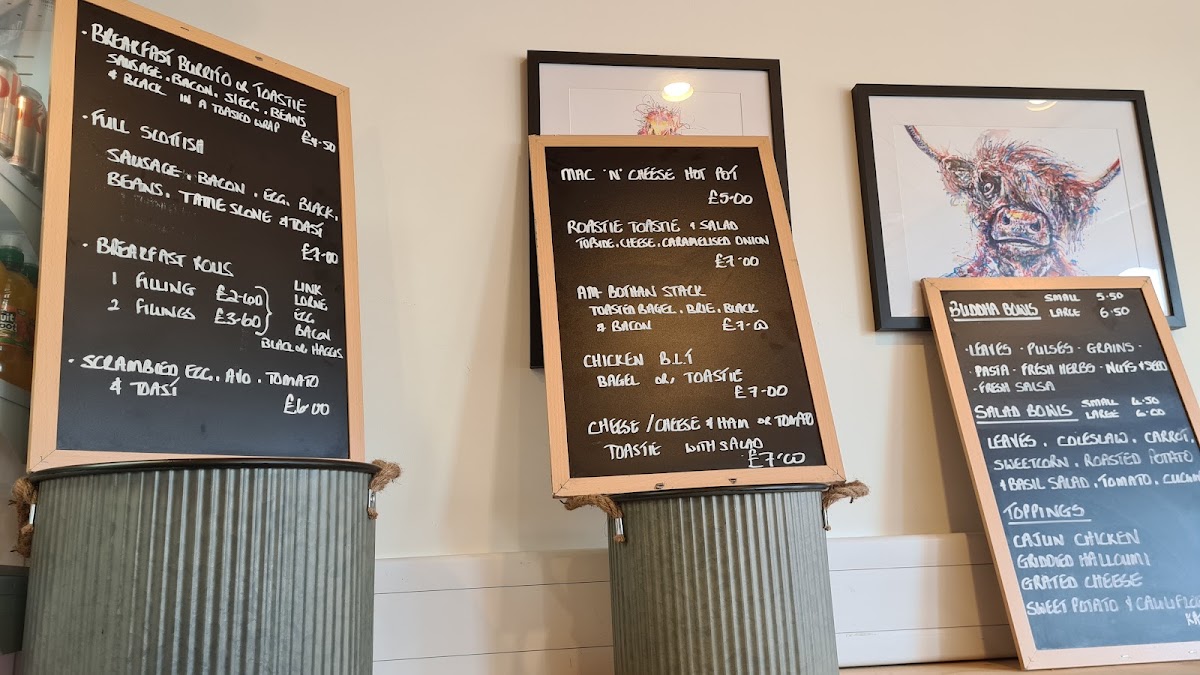 · BREAKFAST BURRITO OR TOASTIE
SAUSAGE . BACON . S/EGG . BEANS
& BLACK IN A TOASTED WRAP
£4.50
· FULL SCOTTISH
SAUSAGE . BACON . EGG . BLACK .
BEANS . TATTIE SCONE & TOAST
£7.00
· BREAKFAST ROLLS
1 FILLING £2.60
2 FILLINGS £3.60
LINK
LORNE
EGG
BACON
BLACK OR HAGGIS
· SCRAMBLED EGG . AVO . TOMATO
& TOAST
£6.00
MAC 'N' CHEESE HOT POT
£5.00
ROASTIE TOASTIE & SALAD
TOPSIDE . CHEESE . CARAMELISED ONION
£7.00
AM BOTHAN STACK
TOASTED BAGEL . BRIE . BLACK
& BACON £7.00
CHICKEN B.L.T
BAGEL OR, TOASTIE
£7.00
CHEESE / CHEESE & HAM OR TOMATO
TOASTIE WITH SALAD
£7.00
BUDDHA BOWLS SMALL 5.50
LARGE 6.50
· LEAVES · PULSES · GRAINS ·
· PASTA · FRESH HERBS · NUTS & SEED
· FRESH SALSA
SALAD BOWLS SMALL 4.50
LARGE 6.00
LEAVES . COLESLAW . CARROT .
SWEETCORN . ROASTED POTATO
& BASIL SALAD . TOMATO . CUCUM
TOPPINGS
CAJUN CHICKEN
GRIDDLED HALLOUMI
GRATED CHEESE
SWEET POTATO & CAULIFLO